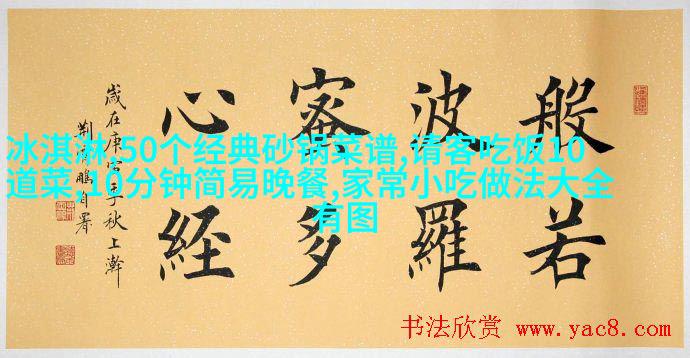 般若
波羅
蜜多
心經
歲在庚寅年秋上澣
荆霄鵬自署
冰淇淋,50个经典砂锅菜谱,请客吃饭10
道菜,10分钟简易晚餐,家常小吃做法大全
有图
书法欣赏 www.yac8.com